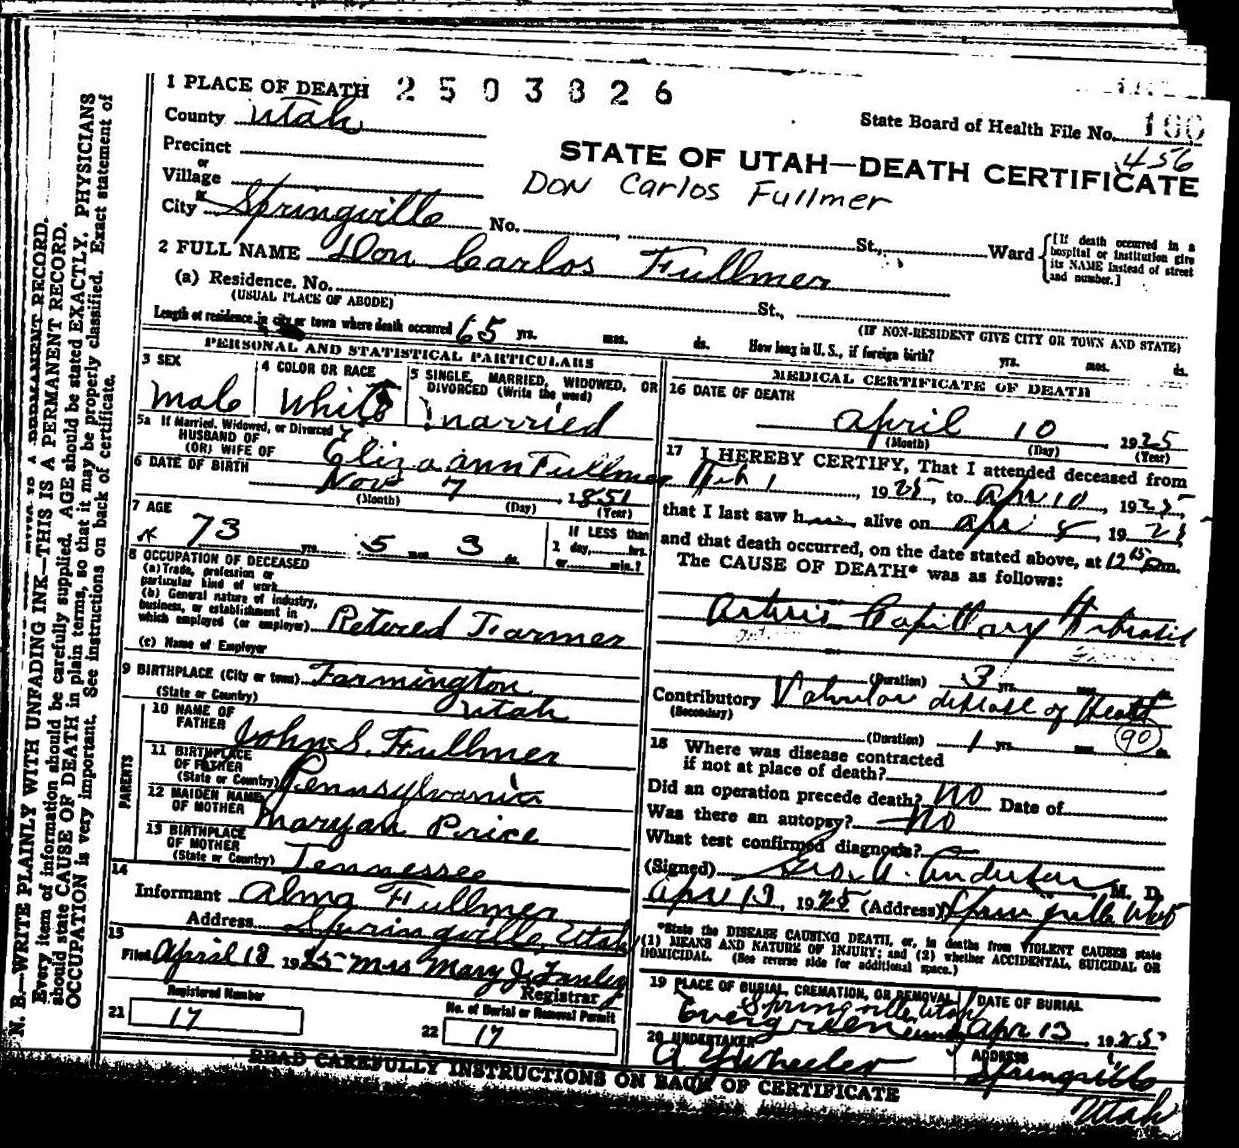 1 PLACE OF DEATH 2503826
County Utah
State Board of Health File No. 100
456
Precinct
or
Village
STATE OF UTAH—DEATH CERTIFICATE
DON Carlos Fullmer
or
City Springville No. St., Ward [If death occurred in a hospital or institution give its NAME instead of street and number.]
2 FULL NAME Don Carlos Fullmer
(a) Residence. No. St.,
(USUAL PLACE OF ABODE) (IF NON-RESIDENT GIVE CITY OR TOWN AND STATE)
Length of residence in city or town where death occurred 65 yrs. mos. ds. How long in U. S., if foreign birth? yrs. mos. ds.
PERSONAL AND STATISTICAL PARTICULARS
3 SEX
Male
4 COLOR OR RACE
White
5 SINGLE, MARRIED, WIDOWED, OR
DIVORCED (Write the word)
married
5a If Married, Widowed, or Divorced
HUSBAND OF
(OR) WIFE OF Eliza ann Fullmer
6 DATE OF BIRTH Nov 7, 1851
(Month) (Day) (Year)
7 AGE
73 yrs. 5 mos. 3 ds.
If LESS than
1 day, hrs.
or min.?
8 OCCUPATION OF DECEASED
(a) Trade, profession or
particular kind of work
(b) General nature of industry,
business, or establishment in
which employed (or employer) Retired Farmer
(c) Name of Employer
9 BIRTHPLACE (City or town) Farmington
(State or Country) Utah
PARENTS
10 NAME OF
FATHER John S. Fullmer
11 BIRTHPLACE
OF FATHER
(State or Country) Pennsylvania
12 MAIDEN NAME
OF MOTHER Maryan Price
13 BIRTHPLACE
OF MOTHER
(State or Country) Tennessee
14
Informant Alma Fullmer
Address Springville, Utah
15
Filed April 18 1925 Mrs Mary J.
Registrar
Registered Number
21 17
No. of Burial or Removal Permit
22 17
MEDICAL CERTIFICATE OF DEATH
16 DATE OF DEATH
April 10, 1925
(Month) (Day) (Year)
17 I HEREBY CERTIFY, That I attended deceased from
Feb 1, 1925, to Apr 10, 1925,
that I last saw him alive on apr 8, 1925,
and that death occurred, on the date stated above, at 12 15 pm.
The CAUSE OF DEATH* was as follows:
Capillary Fibrosis
(Duration) 3 yrs. mos. ds.
Contributory Valvular disease of Heart
(Secondary)
(Duration) 1 yrs. mos. ds.
90
18 Where was disease contracted
if not at place of death?
Did an operation precede death? No Date of
Was there an autopsy? No
What test confirmed diagnosis?
(Signed) Geo. A. Anderson M. D.
Apri 13, 1925 (Address) Springville Utah
*State the DISEASE CAUSING DEATH, or, in deaths from VIOLENT CAUSES state
(1) MEANS AND NATURE OF INJURY; and (2) whether ACCIDENTAL, SUICIDAL OR
HOMICIDAL. (See reverse side for additional space.)
19 PLACE OF BURIAL, CREMATION, OR REMOVAL
Springville, Utah
Evergreen
DATE OF BURIAL
Apr 13, 1925
20 UNDERTAKER
A Y Wheeler
ADDRESS
Springville
Utah
READ CAREFULLY INSTRUCTIONS ON BACK OF CERTIFICATE
N. B.—WRITE PLAINLY WITH UNFADING INK—THIS IS A PERMANENT RECORD.
Every item of information should be carefully supplied. AGE should be stated EXACTLY. PHYSICIANS
should state CAUSE OF DEATH in plain terms, so that it may be properly classified. Exact statement of
OCCUPATION is very important. See instructions on back of certificate.